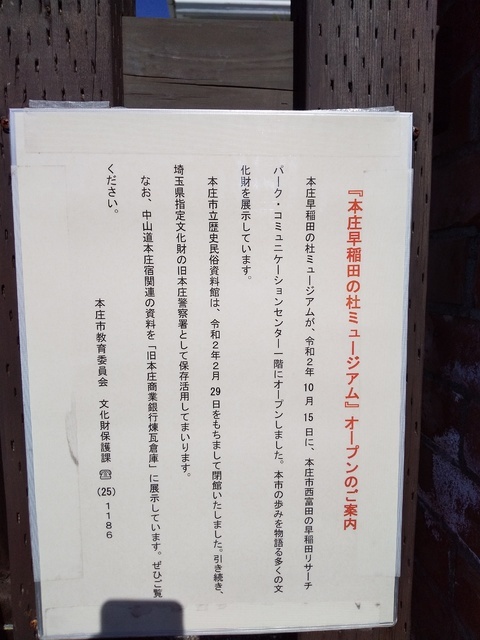 『本庄早稲田の杜ミュージアム』オープンのご案内
本庄早稲田の杜ミュージアムが、令和2年10月15日に、本庄市西富田の早稲田リサーチ
パーク・コミュニケーションセンター一階にオープンしました。本市の歩みを物語る多くの文
化財を展示しています。
本庄市立歴史民俗資料館は、令和2年2月29日をもちまして閉館いたしました。引き続き、
埼玉県指定文化財の旧本庄警察署として保存活用してまいります。
なお、中山道本庄宿関連の資料を「旧本庄商業銀行煉瓦倉庫」に展示しています。ぜひご覧
ください。
本庄市教育委員会 文化財保護課 ☎(25)1186